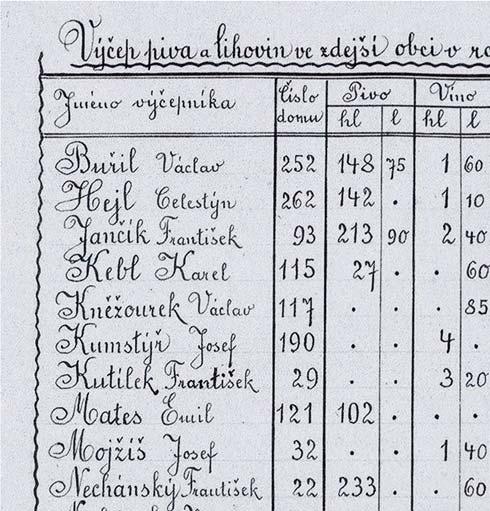 Výčep piva a lihovin ve zdejší obci v
Jméno výčepníka Číslo domu Pivo Víno
hl l hl l
Buřil Václav 252 148 75 1 60
Hejl Celestýn 262 142 . 1 10
Jančík František 93 213 90 2 40
Kebl Karel 115 27 . . 60
Kněžourek Václav 117 . . . 85
Kumstýř Josef 190 . . 4 .
Kutílek František 29 . . 3 20
Mates Emil 121 102 . . .
Mojžíš Josef 32 . . 1 40
Nechánský František 22 233 . . 60